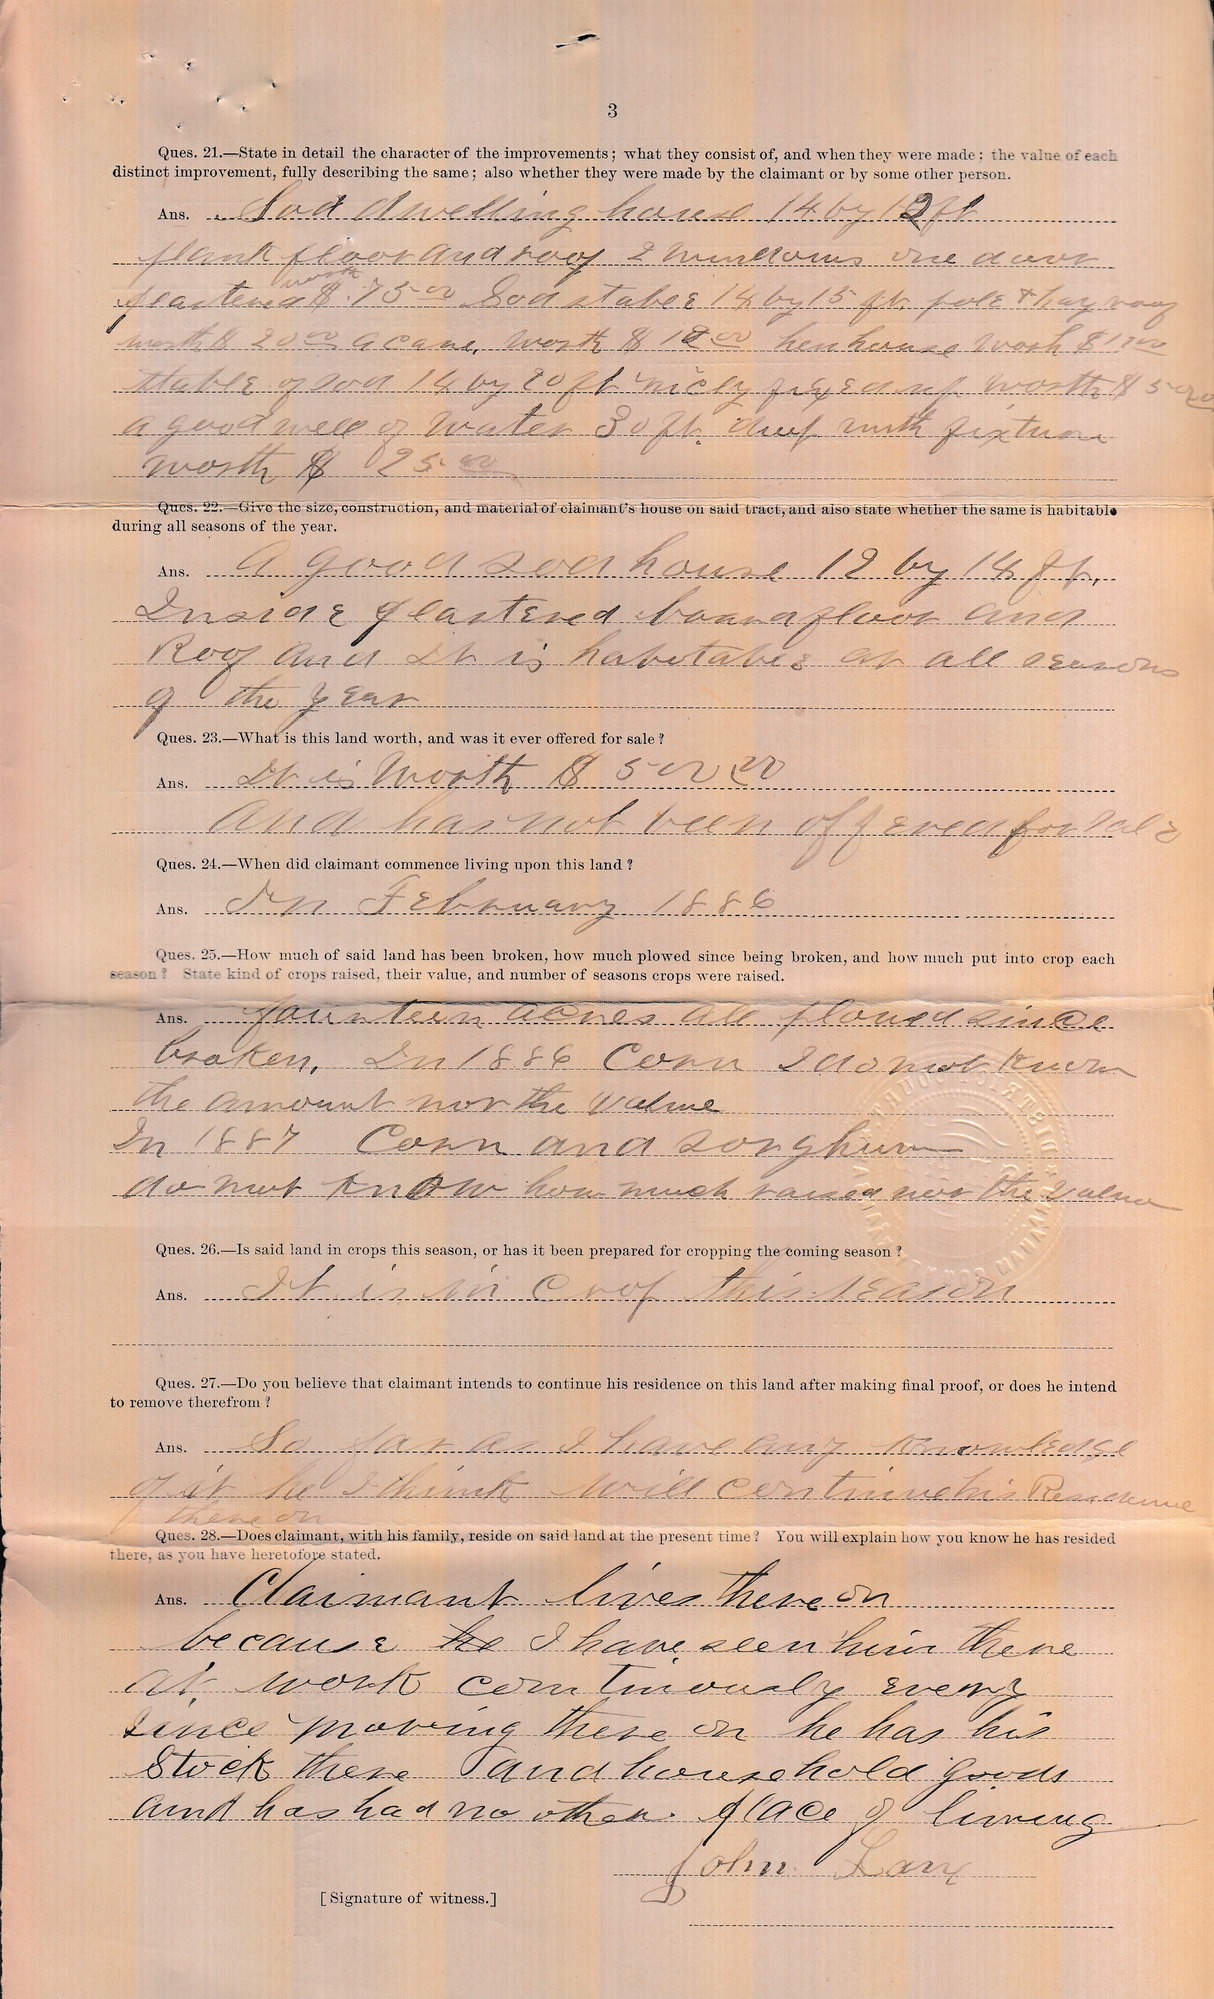 3
Ques. 21.—State in detail the character of the improvements; what they consist of, and when they were made; the value of each
distinct improvement, fully describing the same; also whether they were made by the claimant or by some other person.
Ans. Sod dwelling house 14 by 12 ft
plank floor and roof 2 windows one door
worth
plastered $ 75 00 Sod stable 14 by 15 ft. pole & hay roof
worth $ 20 00 a cave, worth $ henhouse worth
stable of sod 14 by 20 ft nicly fixed up worth $
a good well of water 30 ft. deep with fixture
worth $ 25 00
Ques. 22.—Give the size, construction, and material of claimant's house on said tract, and also state whether the same is habitable
during all seasons of the year.
Ans. A good sod house 12 by 14 ft.
Inside plastered board floor and
Roof and It is habetable at all seasons
of the year
Ques. 23.—What is this land worth, and was it ever offered for sale?
Ans. It is Worth $ 500 00
and has not been offered for sale
Ques. 24.—When did claimant commence living upon this land?
Ans. In February 1886
Ques. 25.—How much of said land has been broken, how much plowed since being broken, and how much put into crop each
season? State kind of crops raised, their value, and number of seasons crops were raised.
Ans. fourteen acres all plowed since
broken. In 1886 Corn I do not know
the amount nor the value
In 1887 Corn and sorghum
do not know how much raised nor the value
Ques. 26.—Is said land in crops this season, or has it been prepared for cropping the coming season?
Ans. It is in Crop this season
Ques. 27.—Do you believe that claimant intends to continue his residence on this land after making final proof, or does he intend
to remove therefrom?
Ans. So far as I have any knowledge
of it he I think will continue his Residence
thereon
Ques. 28.—Does claimant, with his family, reside on said land at the present time? You will explain how you know he has resided
there, as you have heretofore stated.
Ans. Claimant lives there on
because he I have seen him there
at work continously every
since moving there on he has his
Stock there and household goods
and has had no other place of living
John
[Signature of witness.]
DISTRICT COURT